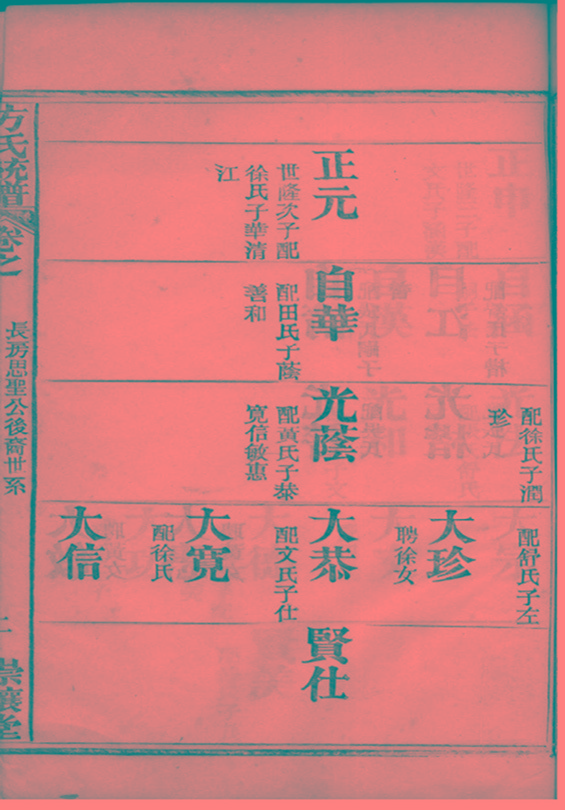 正元
世隆次子配
徐氏子華清
江
自華
配田氏子蔭
善和
配徐氏子潤
珍
光蔭
配黃氏子恭
寬信敏惠
配舒氏子左
大珍
聘徐女
大恭
配文氏子仕
大寬
配徐氏
大信
賢仕
方氏統譜
卷之
長房思聖公後裔世系
崇讓堂